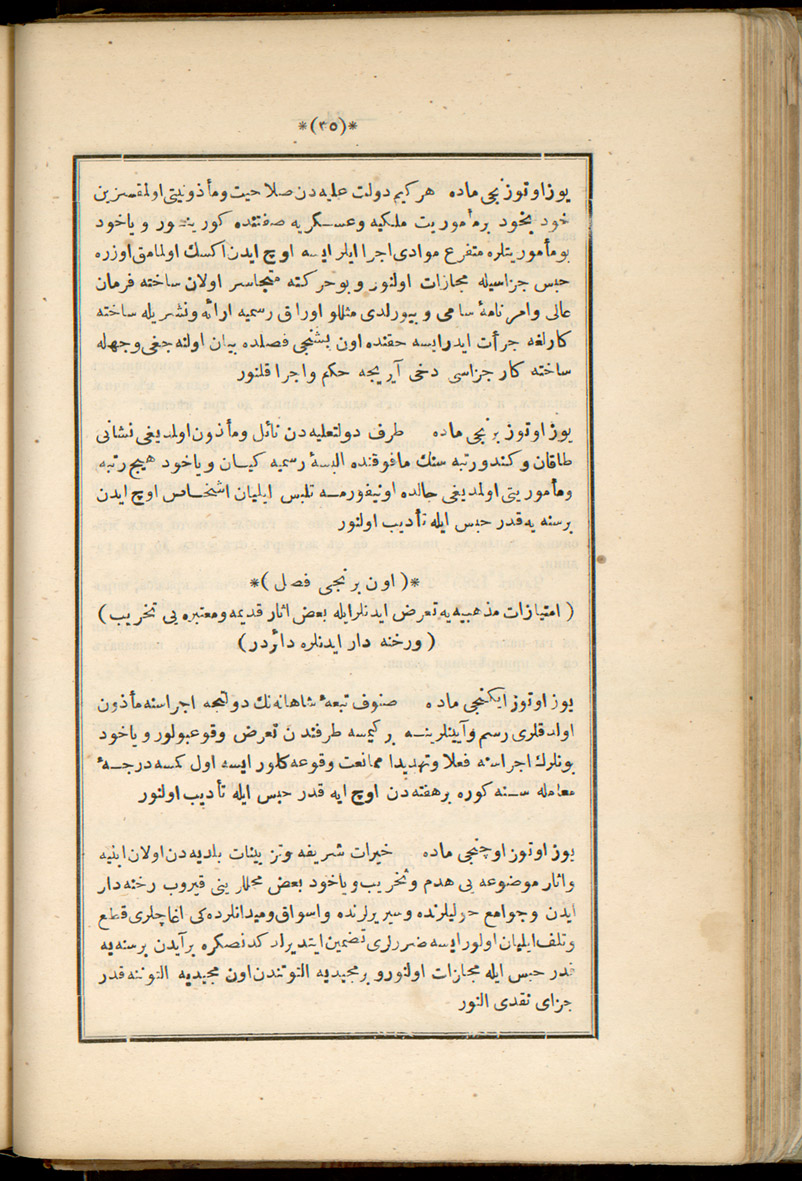 *(٣٥)*
يوز اوتوزنجی ماده هركیم دولت علیه دن صلاحیت ومأذونیتی اولمقسزین
خود بخود برمأموریت ملكیه وعسكریه صفتنده كورینور ویاخود
بومأموریتلره متفرع موادی اجرا ایلرایسه اوچ ایدن اكسك اولمامق اوزره
حبس جزاسیله مجازات اولنور وبوحركته متجاسر اولان ساخته فرمان
عالی وامرنامۀ سامی وبیورلدی مثللو اوراق رسمیه ارائه ونشریله ساخته
كارلغه جرأت ایدرایسه حقنده اون بشنجی فصلده بیان اولنه جغی وجهله
ساخته كار جزاسی دخی آیریجه حكم واجرا قلنور
یوز اوتوز برنجی ماده طرف دولتعلیه دن نائل ومأذون اولمدیغی نشانی
طاقان وكندورتبه سنك مافوقنده البسۀ رسمیه كیان ویاخود هیچ رتبه
ومأموریتی اولمدیغی حالده اونیفورمه تلبس ایلیان اشخاص اوچ ایدن
برسنه یه قدر حبس ایله تأدیب اولنور
*( اون برنجی فصل )*
( امتیازات مذهبیه یه تعرض ایدنلرایله بعض اثار قدیمه ومعتبره یی تخریب )
( ورخنه دار ایدنلره دائردر )
یوز اوتوز ایكنجی ماده صنوف تبعۀ شاهانه نك دولتجه اجراسنه مأذون
اولدقلری رسم وآیینلرینه بر كیمسه طرفندن تعرض وقوعبولور ویاخود
بونلرك اجراسنه فعلا وتهدیدا ممانعت وقوعه كلور ایسه اول كمسه درجۀ
معامله سنه كوره برهفته دن اوچ ایه قدر حبس ایله تأدیب اولنور
یوز اوتوز اوچنجی ماده خیرات شریفه وتزیینات بلدیه دن اولان ابنیه
واثار موضوعه یی هدم وتخریب ویاخود بعض محللرینی قیروب رخنه دار
ایدن وجوامع حولیلرنده وسیریرلرنده واسواق ومیدانلرده كی اغاچلری قطع
وتلف ایلیان اولورایسه ضررلری تضمین ایتدیرلدكدنصكره برآیدن برسنه یه
قدر حبس ایله مجازات اولنور وبرمجیدیه التوندن اون مجیدیه التوننه قدر
جزای نقدی النور